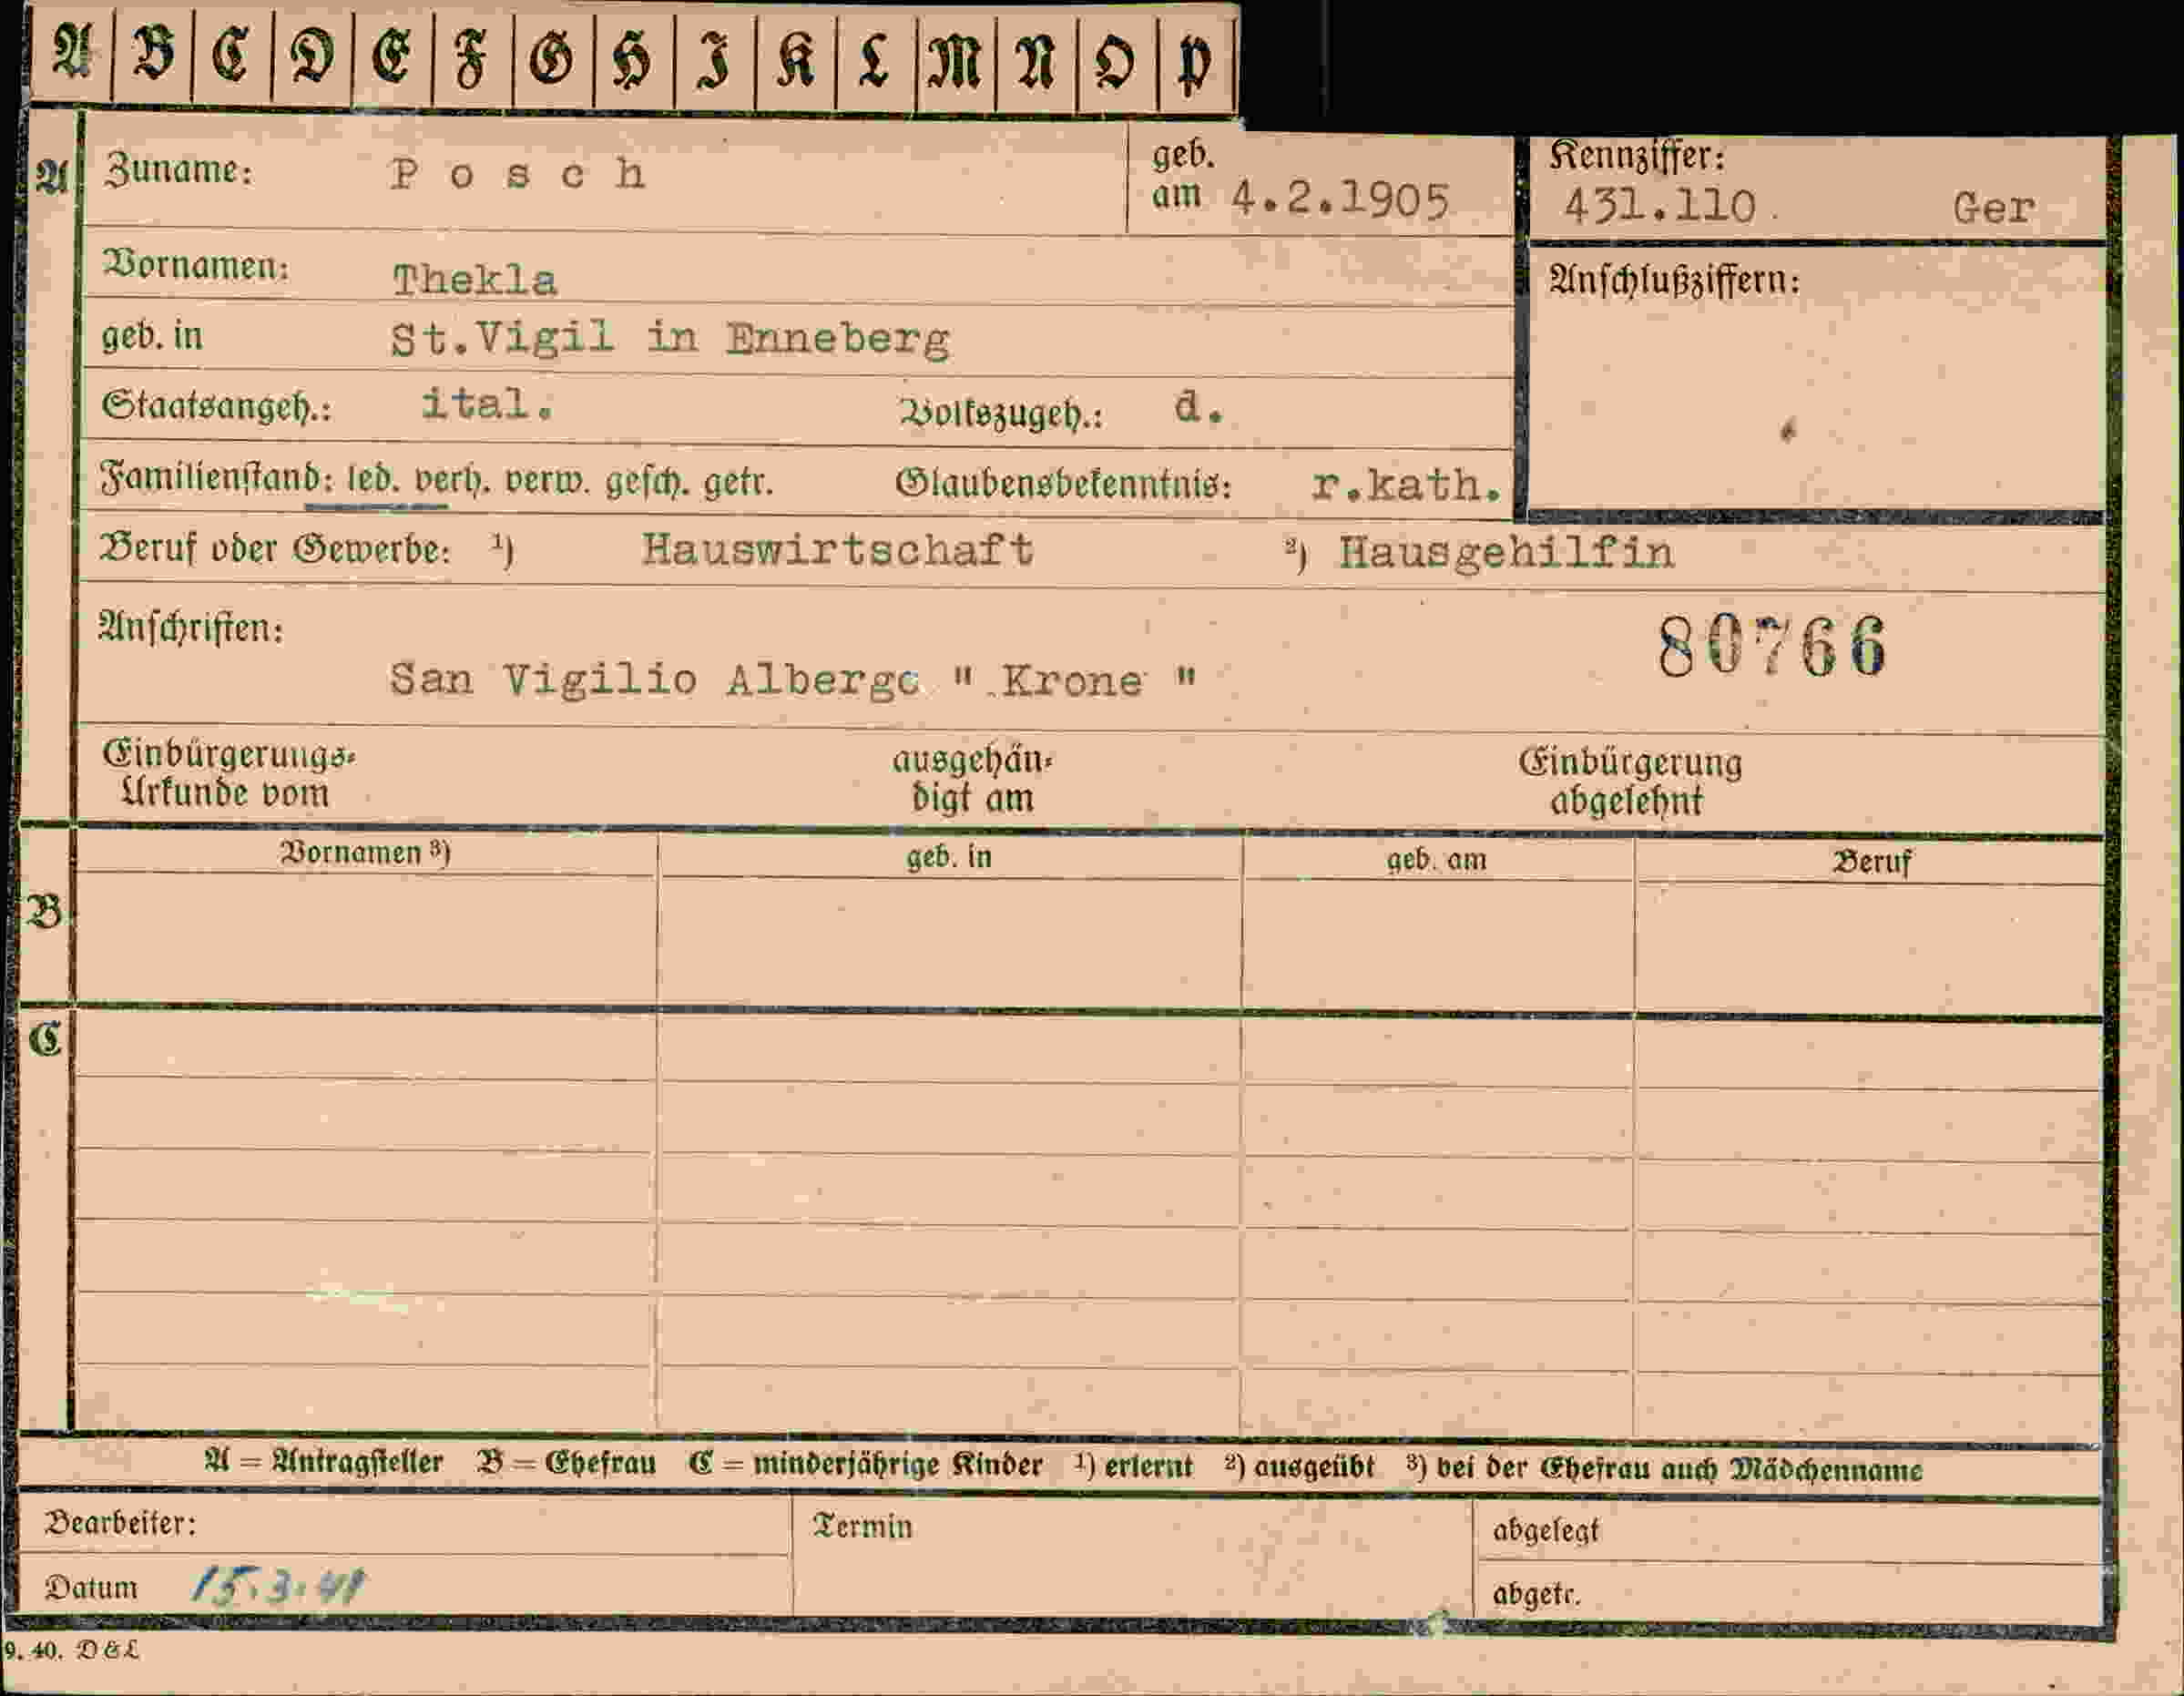 A B C D E F G H I K L M N O P
A Zuname: Posch geb. am 4.2.1905 Kennziffer: 431.110. Ger
Vornamen: Thekla Anschlußziffern:
geb. in St.Vigil in Enneberg
Staatsangeh.: ital. Volkszugeh.: d.
Familienstand: led. verh. verw. gesch. getr. Glaubensbekenntnis: r.kath.
Beruf oder Gewerbe: ¹) Hauswirtschaft ²) Hausgehilfin
Anschriften: 80766
San Vigilio Albergo " Krone "
Einbürgerungs- ausgehän- Einbürgerung
Urkunde vom digt am abgelehnt
Vornamen ³) geb. in geb. am Beruf
B
C
A = Antragsteller B = Ehefrau C = minderjährige Kinder ¹) erlernt ²) ausgeübt ³) bei der Ehefrau auch Mädchenname
Bearbeiter: Termin abgelegt
Datum 15.3.41 abgetr.
9. 40. D & L